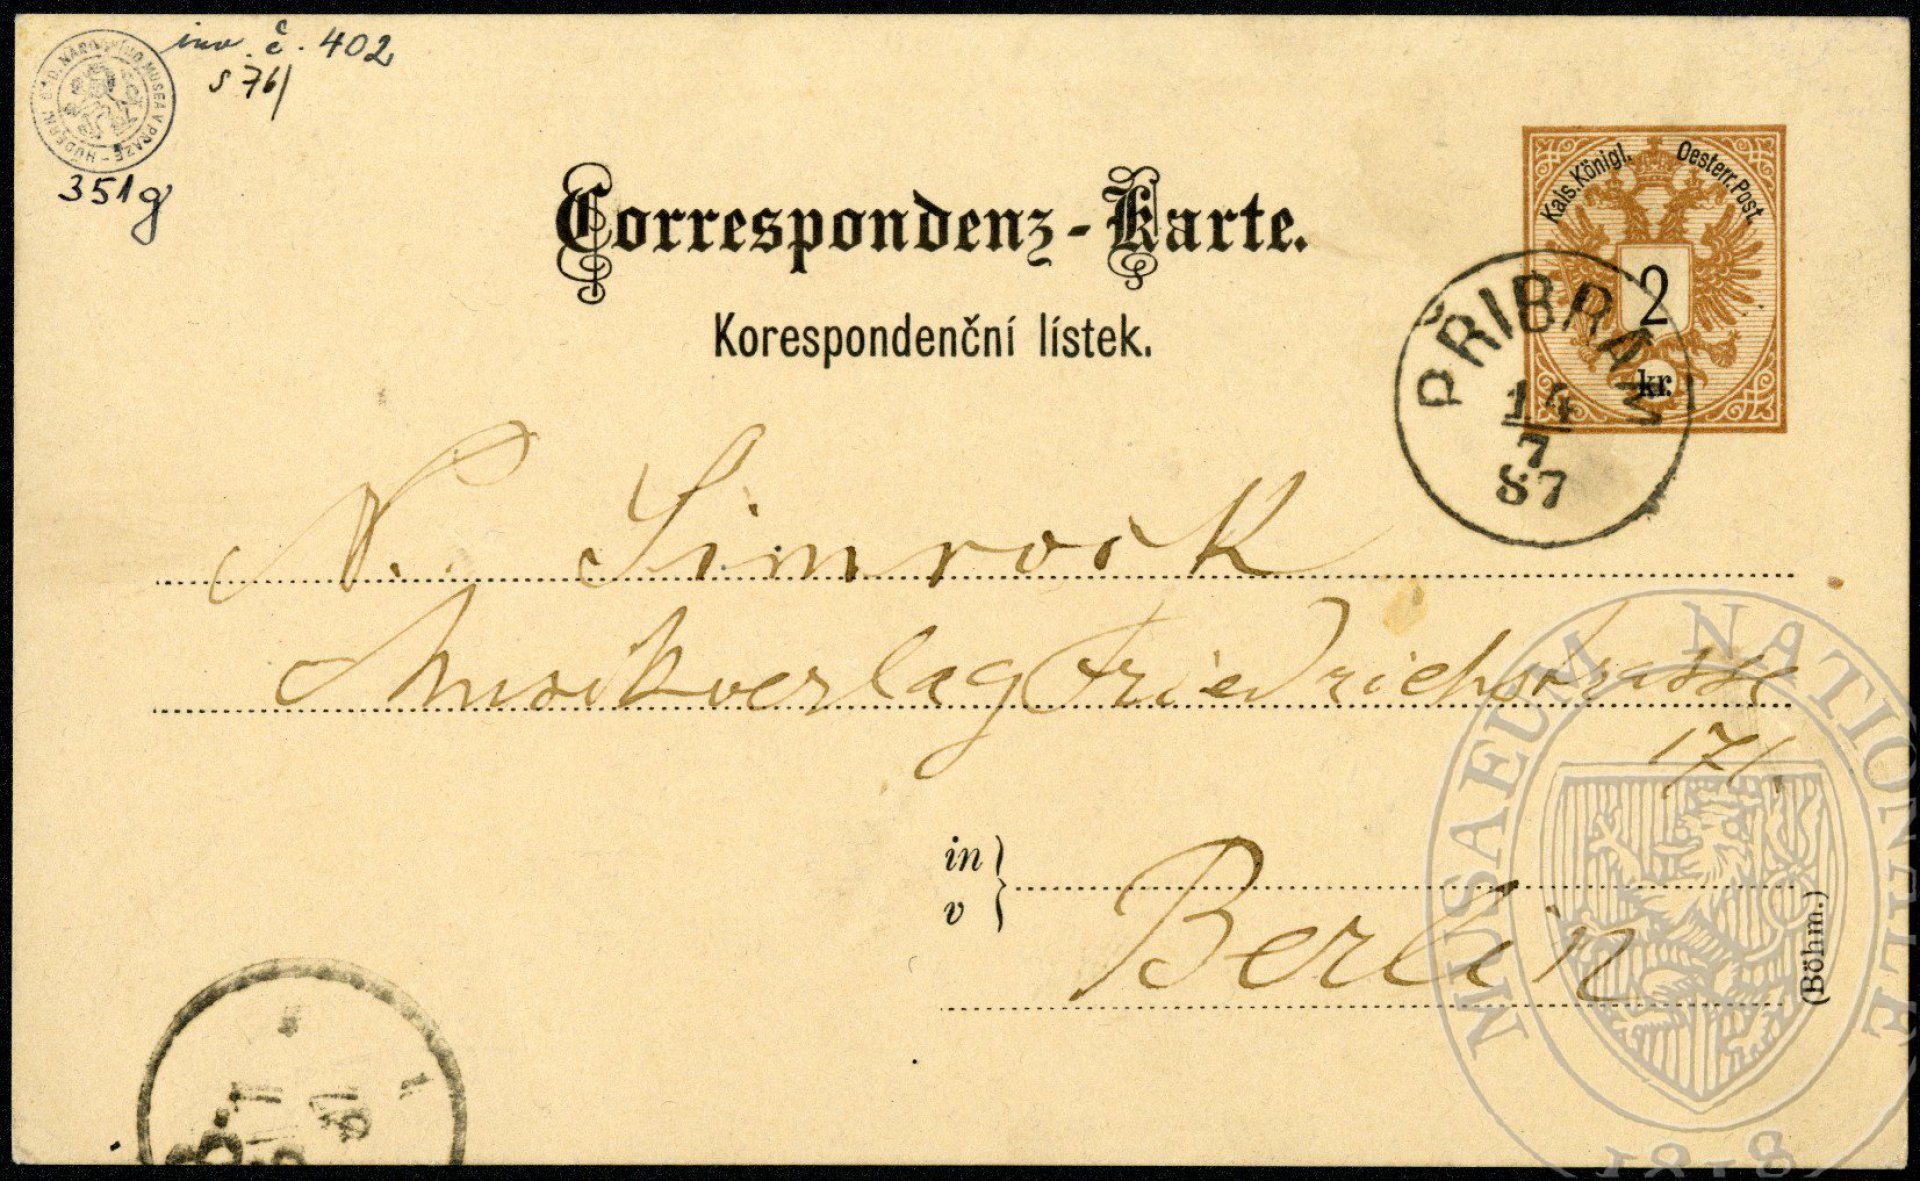 inv. č. 402
s 76/
HUDEBNÍ ODD. NÁRODNÍHO MUSEA V PRAZE
351g
Correspondenz-Karte.
Korespondenční lístek.
Kais. Königl. Oesterr. Post
2
kr.
PŘIBRAM
14
7
87
N. Simrock
Musikverlag Friedrichstrasse
171.
in
v
Berlin
(Böhm.)
MUSAEUM NATIONALE
1818